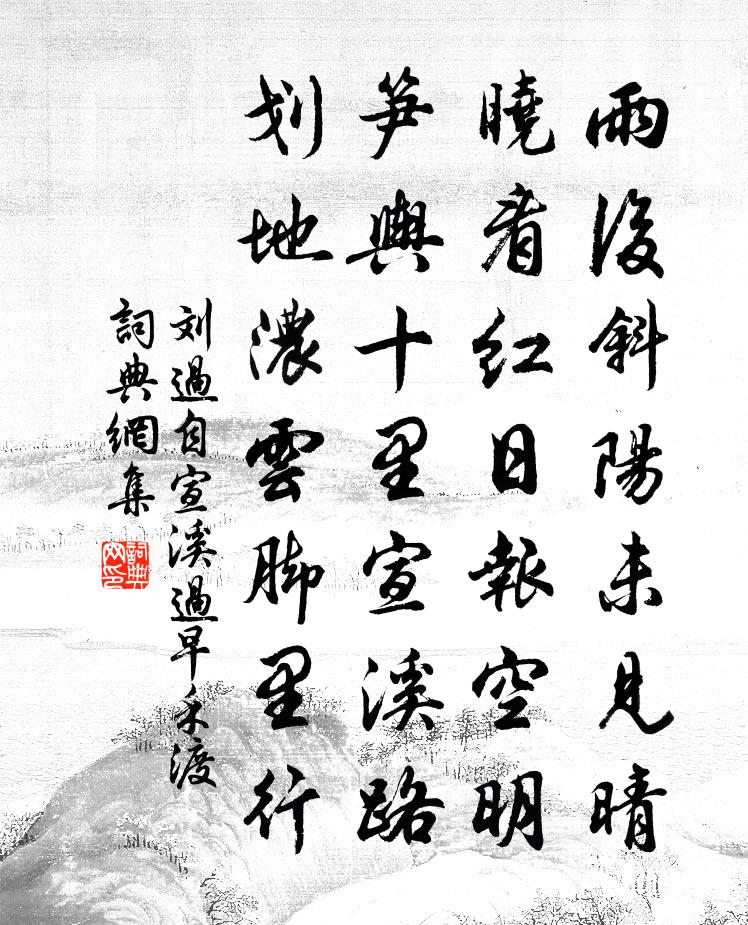 雨後斜陽未見晴
曉看紅日報空明
笋輿十里宣溪路
刬地濃雲脚里行
刘過自宣溪過早禾渡
詞典網集
詞典